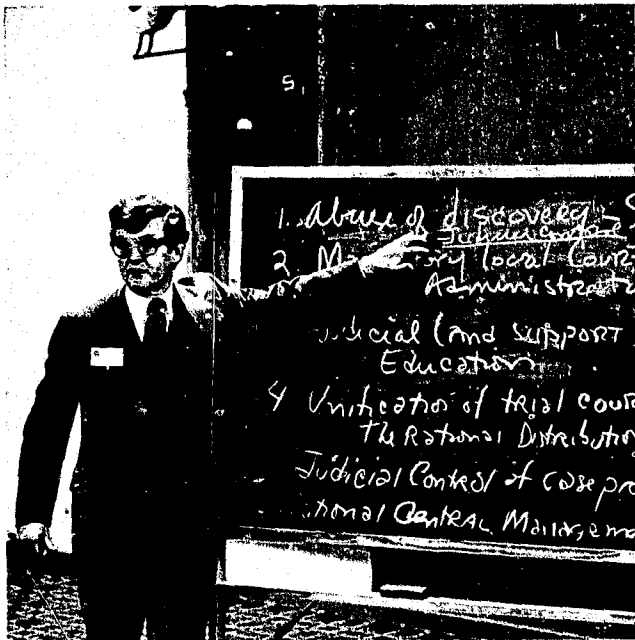 S,
1. Abuse of discovery - S
2. M ory local Cour
Administrat
dicial (and support
Education
4 Unification of trial cour
The Rational Distributio
Judicial Control of case pro
tional Central Manageme